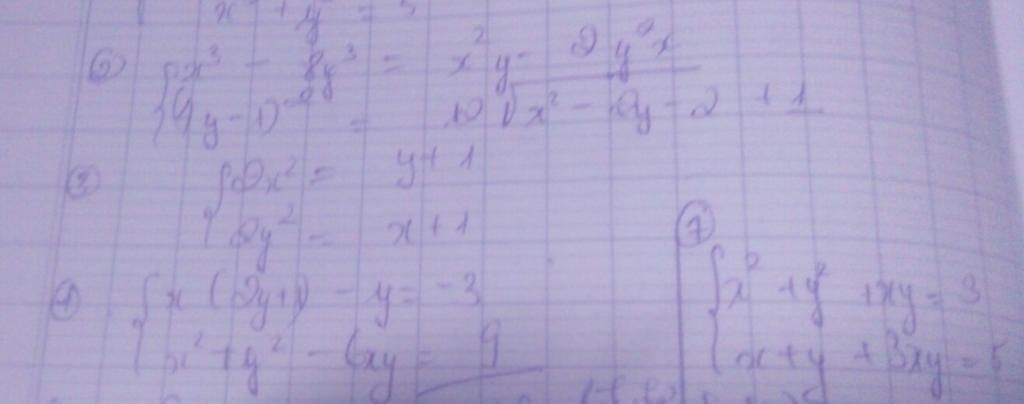 ⑥ { x³ - 8y³ = x²y - 2y²x
(y-1)² = 10√x² - 2y - 2 + 1
③ { 2x² = y+1
2y² = x+1
④ { x(2y+1) - y = -3
x² + y² - 6xy = 9
⑦
{ x² + y² + xy = 3
x+y + 3xy = 5